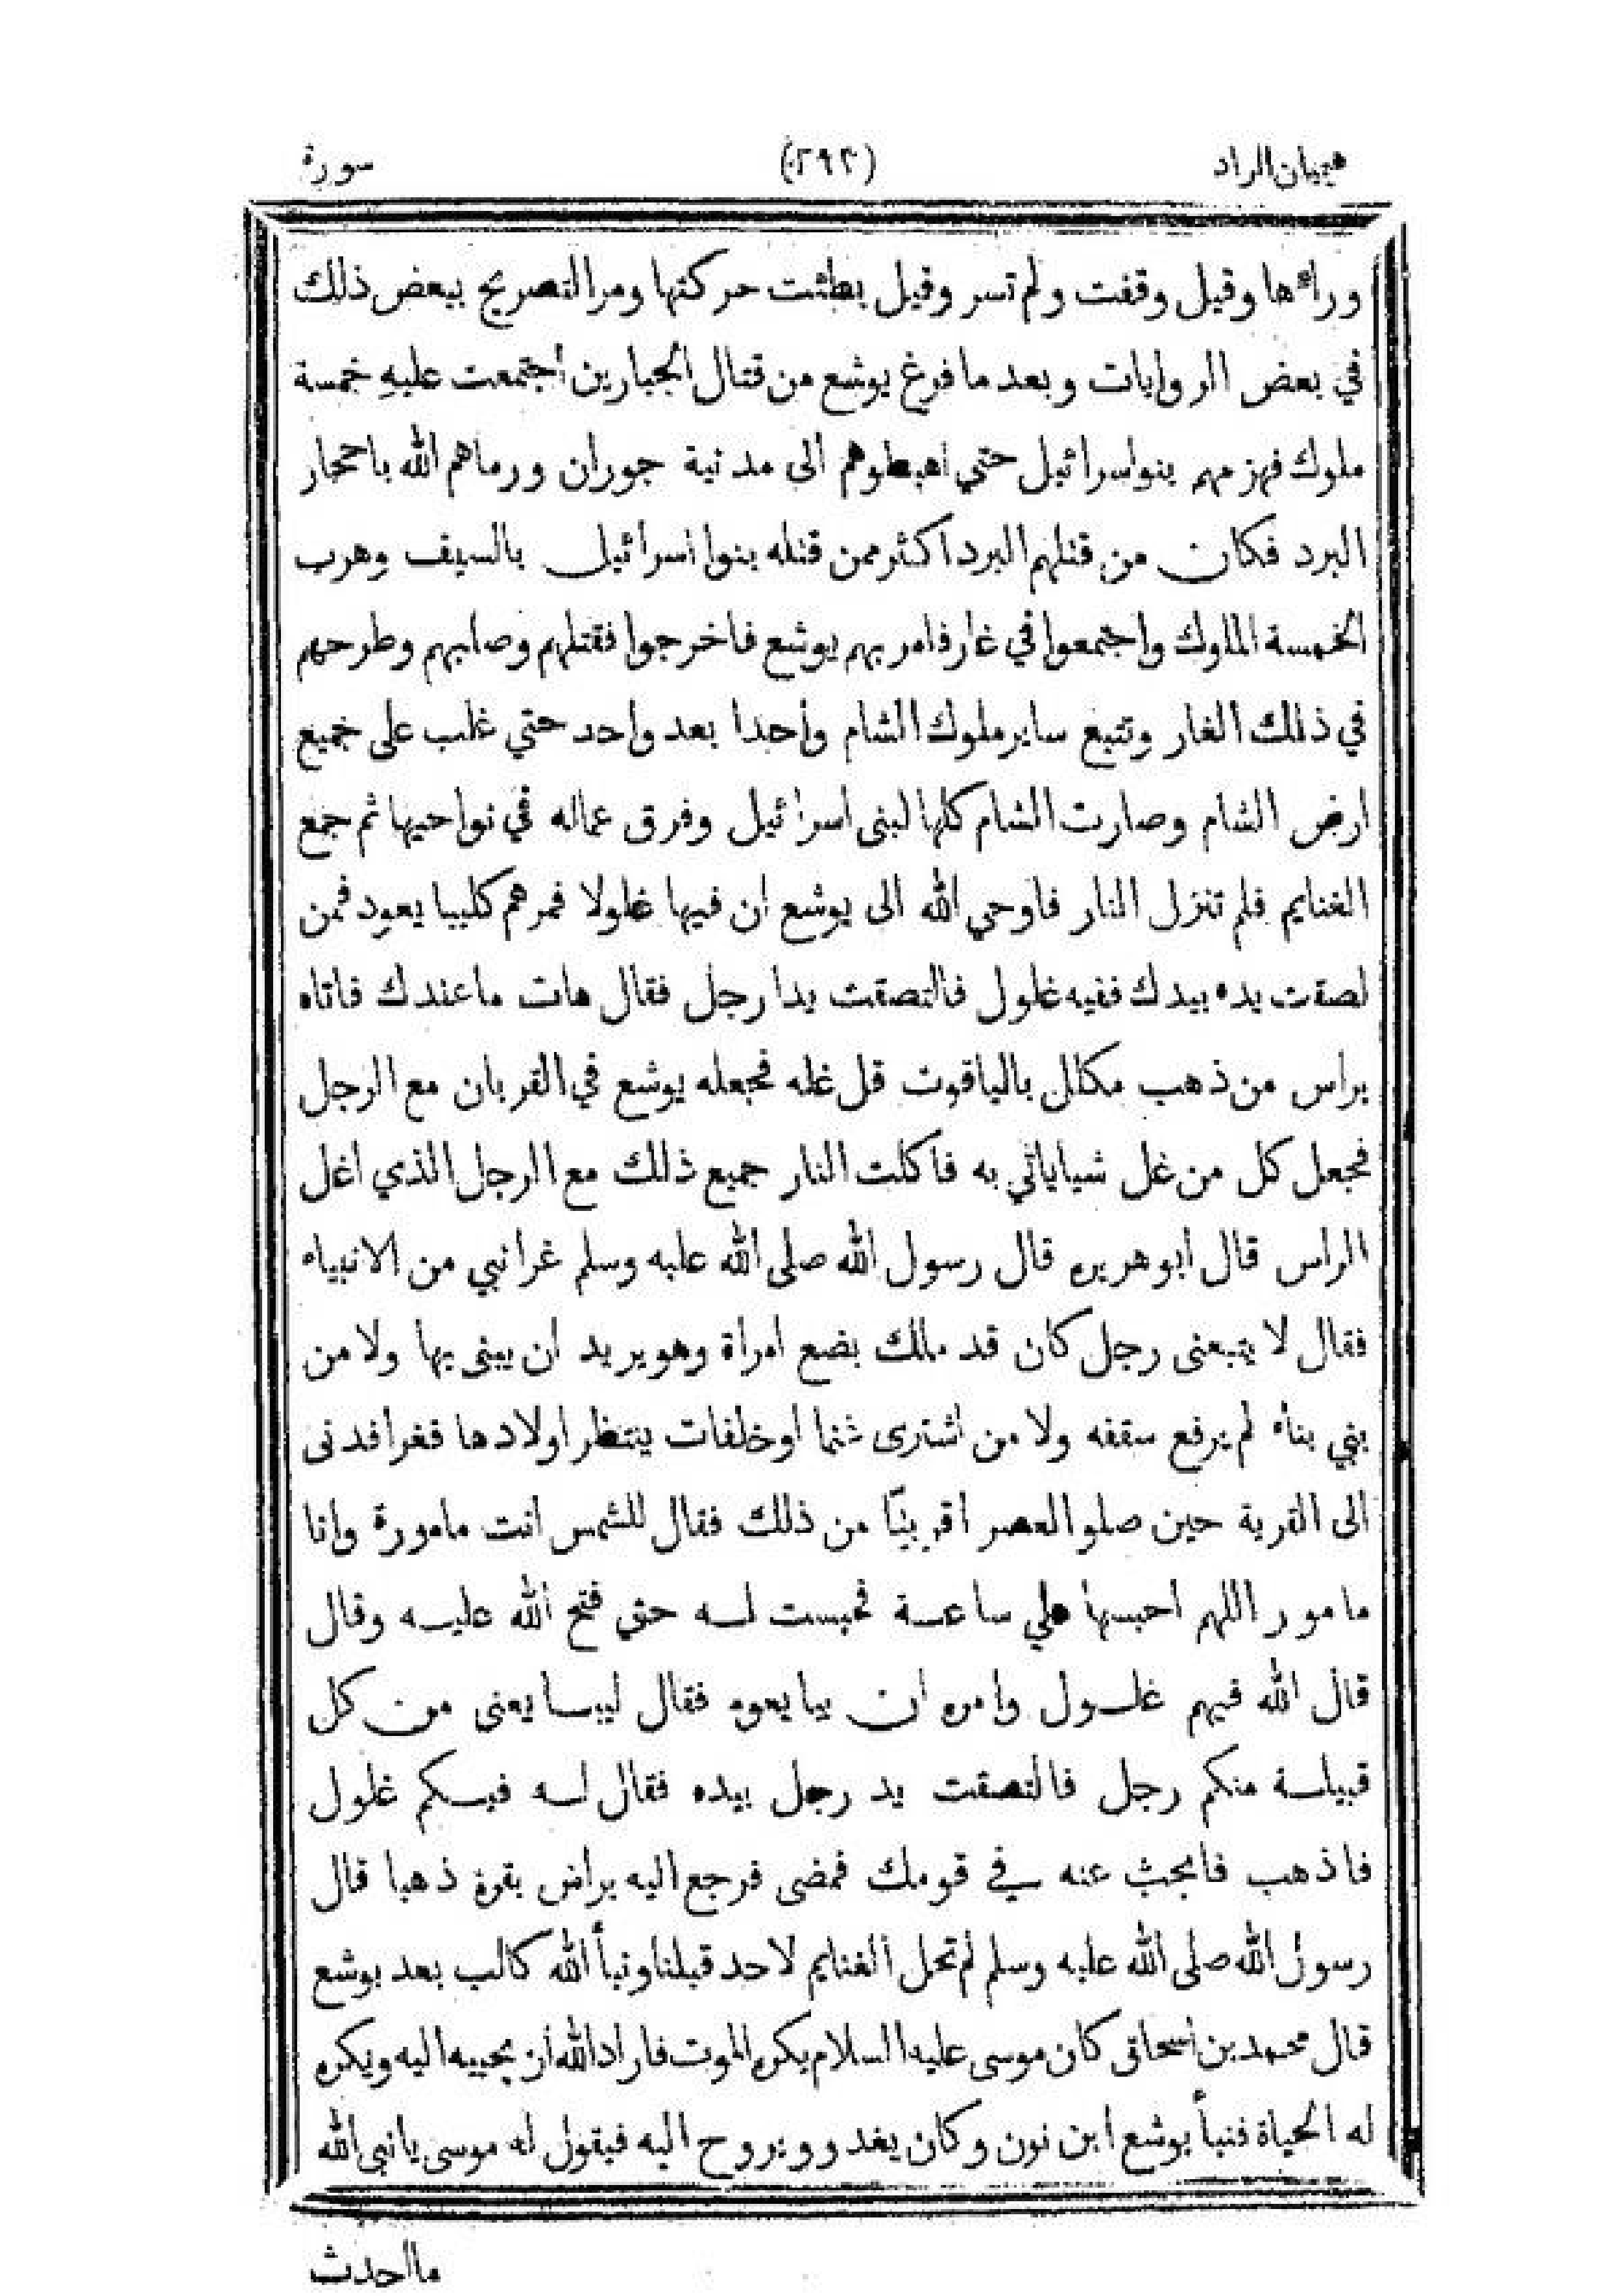 هيميان الزاد (٢٩٣) سورة
وراءها وقيل وقفت ولم تسر وقيل بطئت حركتها ومر التصريح ببعض ذلك
في بعض الروايات وبعد ما فرغ يوشع من قتال الجبارين اجتمعت عليه خمسة
ملوك فهزمهم بنواسرائيل حتي اهبطوهم الى مدنية جوران ورماهم الله باحجار
البرد فكان من قتلهم البرد اكثر ممن قتله بنوا اسرائيل بالسيف وهرب
الخمسة الملوك واجتمعوا في غار فامر بهم يوشع فاخرجوا فقتلهم وصلبهم وطرحهم
في ذلك الغار وتتبع ساير ملوك الشام واحدا بعد واحد حتي غلب على جميع
ارض الشام وصارت الشام كلها لبنى اسرائيل وفرق عماله في نواحيها ثم جمع
الغنايم فلم تنزل النار فاوحي الله الى يوشع ان فيها غلولا فمرهم كليبا يعود فمن
لصقت يده بيدك ففيه غلول فالتصقت يدا رجل فقال هات ما عندك فاتاه
براس من ذهب مكلل بالياقوت قل غله فجعله يوشع في القربان مع الرجل
فجعل كل من غل شيا ياتي به فاكلت النار جميع ذلك مع الرجل الذي اغل
الراس قال ابو هريره قال رسول الله صلى الله عليه وسلم غزا نبي من الانبياء
فقال لا يتبعنى رجل كان قد ملك بضع امراة وهو يريد ان يبنى بها ولا من
بني بناء لم يرفع سقفه ولا من اشترى غنما او خلفات ينتظر اولادها فغزا فدنى
الى القرية حين صلو العصر اقريبًا من ذلك فقال للشمس انت مامورة وانا
مامور اللهم احبسها علي ساعة فحبست له حتى فتح الله عليه وقال
قال الله فيهم غلول وامره ان يبايعوه فقال ليبسا يعنى من كل
قبيلة منكم رجل فالتصقت يد رجل بيده فقال له فيكم غلول
فاذهب فابحث عنه في قومك فمضى فرجع اليه براس بقرة ذهبا قال
رسول الله صلى الله عليه وسلم لم تحل الغنايم لاحد قبلنا ونبأ الله كالب بعد يوشع
قال محمد بن اسحاق كان موسى عليه السلام يكره الموت فاراد الله ان يحببه اليه ويكره
له الحياة فنبأ يوشع ابن نون وكان يغدو ويروح اليه فيقول له موسى يا نبى الله
ما احدث